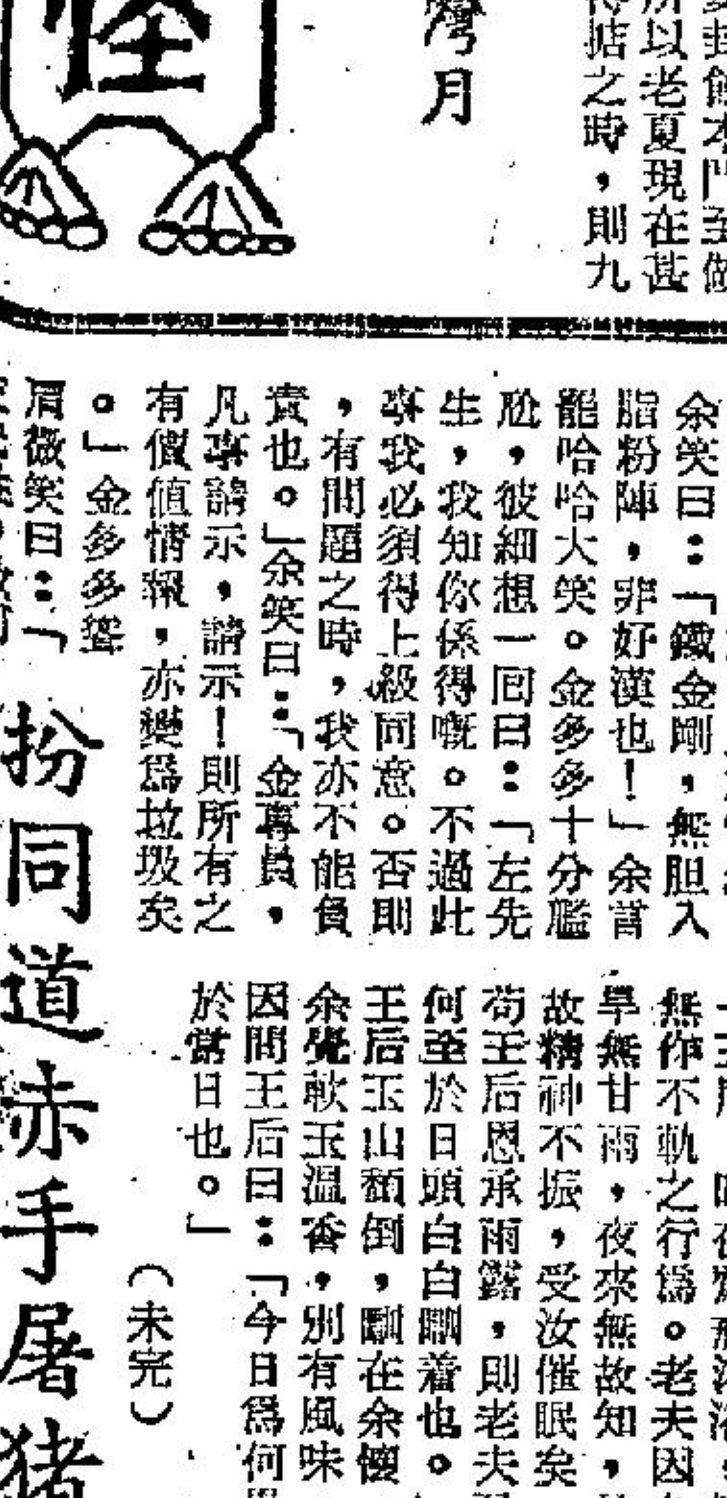 怪
灣月
所以老夏現在甚
掂之時，則九
余笑曰：「鐵金剛，無胆入
脂粉陣，非好漢也！」余嘗
龍哈哈大笑。金多多十分尷
尬，彼細想一囘曰：「左先
生，我知你係得嘅。不過此
事我必須得上級同意。否則
，有問題之時，我亦不能負
責也。」余笑曰：「金專員，
凡事請示，請示！則所有之
有價值情報，亦變爲垃圾矣
。」金多多聳
肩微笑曰：「
無作不軌之行爲。老夫因
旱無甘雨，夜來無故知，
故精神不振，受汝催眠矣
苟王后恩承雨露，則老夫
何至於日頭白白瞓着也。
王后玉山頹倒，瞓在余懷
余覺軟玉溫香，別有風味
因問王后曰：「今日爲何
於當日也。」
（未完）
扮同道赤手屠猪